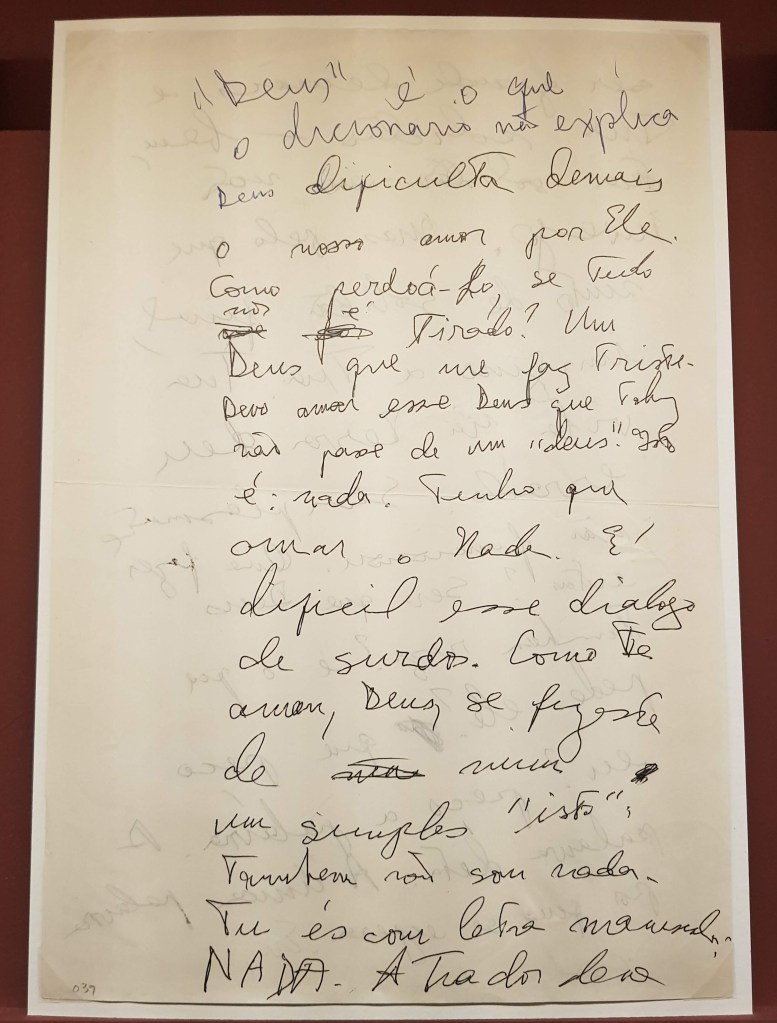 "Deus" é o que
o dicionario não explica
Deus dificulta demais
o nosso amor por Ele.
Como perdoá-Lo, se tudo
nos é
tirado? Um
Deus que me faz triste.
Devo amar esse Deus que talvez
não passe de um "deus". Isto
é: nada. Tenho que
amar o Nada. É
dificil esse dialogo
de surdos. Como te
amar, Deus, se fizeste
de mim
um simples "isto".
Tambem não sou nada.
Tu és com letra maiuscula:
NADA. A
deve
037